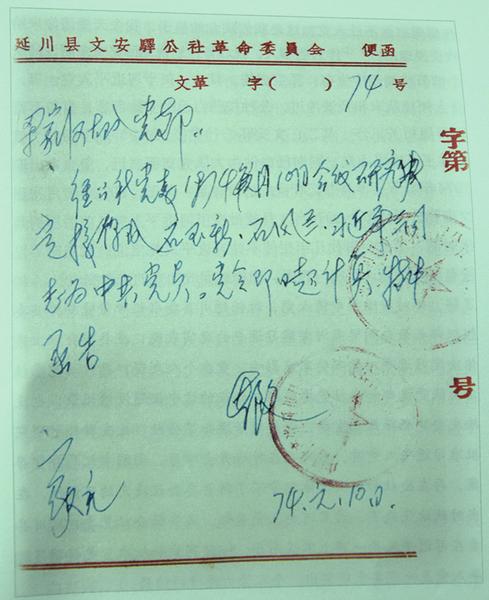 延川县文安驛公社革命委員会 便函
文革 字( ) 74 号
字第
梁家河大队党支部:
经公社党委1974年1月10日会议研究决
定接收 石玉新、石凤兰、习近平同
志为中共党员。党令即时起计算。特此
函告
74.元.10日.
号